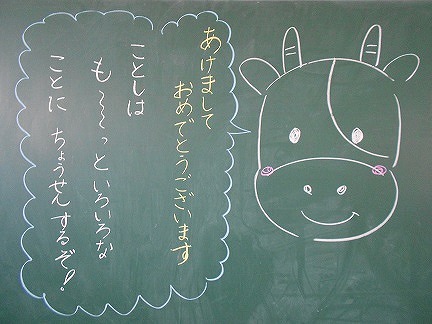 あけまして
おめでとうございます
ことしは
も〜〜っといろいろな
ことに ちょうせんするぞ!